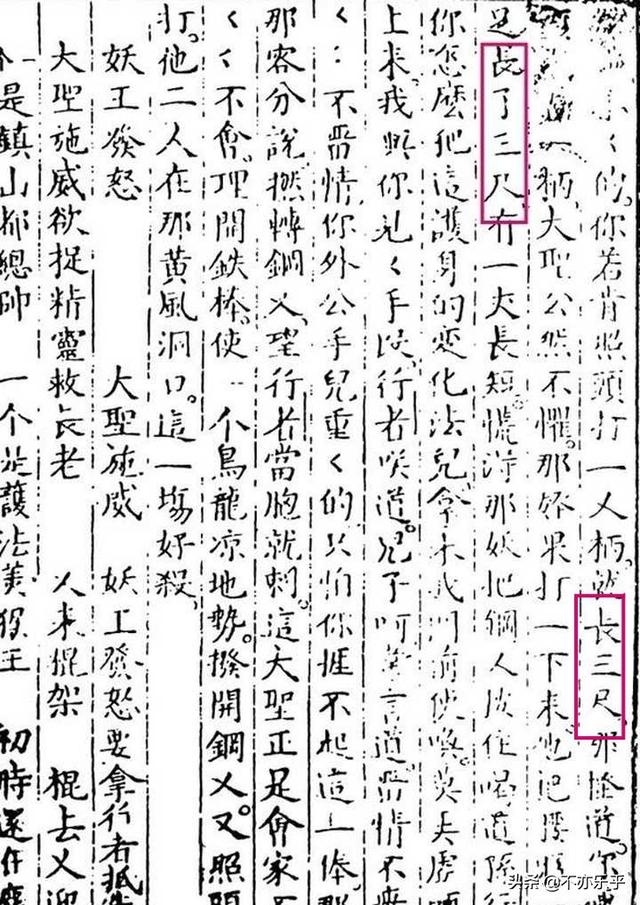 小〱的。你若肯照頭打一乂柄。就長三尺。那怪道你
柄。大聖公然不懼。那妖果打一下來。他把腰
足長了三尺。有一丈長短。慌得那妖把鋼乂按住喝道孫行
你怎麽把這護身的變化法兒拿來我門前使喚。莫弄虛
上來。我與你見〱手段。行者咲道。兒子呵常言道。畱情不
不畱情你外公手兒重〱的只怕你捱不起這一棒。那
那客分說撚轉鋼乂。望行者當胸就刺。這大聖正是會家不
〱〱不會。理開鉄棒。使一个烏龍凉地勢。撥開鋼乂。又照頭
打。他二人在那黃風洞口。這一塲好殺。
妖王發怒 大聖施威 妖王發怒要拿行者抵先
大聖施威欲捉精靈救長老 乂來棍架 棍去乂迎
个是鎮山都總帥 一个是護法美猴王 初時還在塵
头条 @不亦乐乎